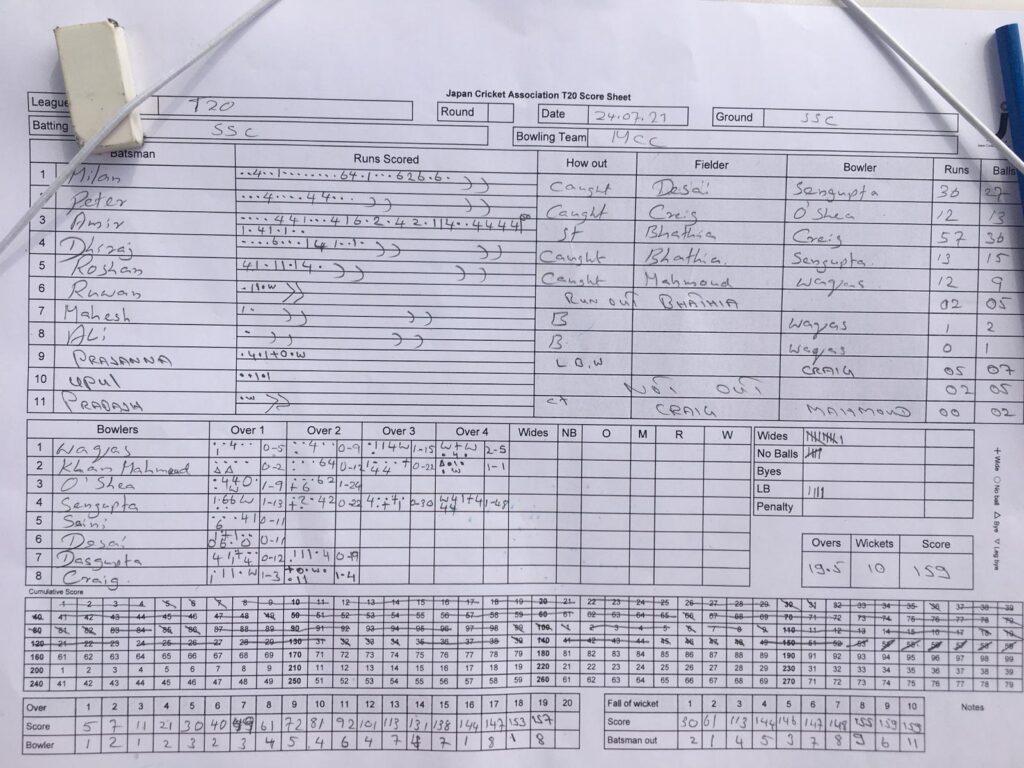 Japan Cricket Association T20 Score Sheet
League T20 Round Date 24.07.21 Ground SSC
Batting SSC Bowling Team MCC
Batsman Runs Scored How out Fielder Bowler Runs Balls
1 Milan Caught Desai Sengupta 30 27
2 Peter Caught Creig O'Shea 12 13
3 Amir ST Bhathia Creig 57 36
4 Dhiraj Caught Bhathia. Sengupta. 13 15
5 Roshan 41.11.14. Caught Mahmoud Waqas 12 9
6 Ruwan RUN OUT BHATHIA 02 05
7 Mahesh 1. B Waqas 1 2
8 ALI . B. Waqas 0 1
9 PRASANNA .4.1+0.W LB.W CRAIG 05 07
10 UPUL NOT OUT 02 05
11 PRADASH .W CT CRAIG MAHMOUD 00 02
Bowlers Over 1 Over 2 Over 3 Over 4 Wides NB O M R W
1 Waqas 0-5 0-9 1-15 2-5
2 Khan Mahmoud 0-2 0-12 0-22 1-1
3 O'Shea 1-9 1-24
4 Sengupta 1-13 0-22 0-30 1-48
5 Saini 0-11
6 Desai 0-11
7 Dasgupta 0-12 0-19
8 Craig. 1-3 1-4
Wides
No Balls
Byes
LB
Penalty
+ Wide O No ball △ Bye ▽ Leg bye
Overs Wickets Score
19.5 10 159
Cumulative Score
1 2 3 4 5 6 7 8 9 10 11 12 13 14 15 16 17 18 19 20 21 22 23 24 25 26 27 28 29 30 31 32 33 34 35 36 37 38 39
40 41 42 43 44 45 46 47 48 49 50 51 52 53 54 55 56 57 58 59 60 61 62 63 64 65 66 67 68 69 70 71 72 73 74 75 76 77 78 79
80 81 82 83 84 85 86 87 88 89 90 91 92 93 94 95 96 97 98 99 100 1 2 3 4 5 6 7 8 9 110 11 12 13 14 15 16 17 18 19
120 21 22 23 24 25 26 27 28 29 130 31 32 33 34 35 36 37 38 39 140 41 42 43 44 45 46 47 48 49 150 51 52 53 54 55 56 57 58 59
160 61 62 63 64 65 66 67 68 69 170 71 72 73 74 75 76 77 78 79 180 81 82 83 84 85 86 87 88 89 190 91 92 93 94 95 96 97 98 99
200 1 2 3 4 5 6 7 8 9 210 11 12 13 14 15 16 17 18 19 220 21 22 23 24 25 26 27 28 29 230 31 32 33 34 35 36 37 38 39
240 41 42 43 44 45 46 47 48 49 250 51 52 53 54 55 56 57 58 59 260 61 62 63 64 65 66 67 68 69 270 71 72 73 74 75 76 77 78 79
Over 1 2 3 4 5 6 7 8 9 10 11 12 13 14 15 16 17 18 19 20
Score 5 7 11 21 30 40 49 61 72 81 92 101 113 131 138 144 147 153 157
Bowler 1 2 1 2 3 2 3 4 5 4 6 4 7 4 7 1 8 1 8
Fall of wicket 1 2 3 4 5 6 7 8 9 10
Score 30 61 113 144 146 147 148 155 159 159
Batsman out 2 1 4 5 3 7 8 9 6 11
Notes